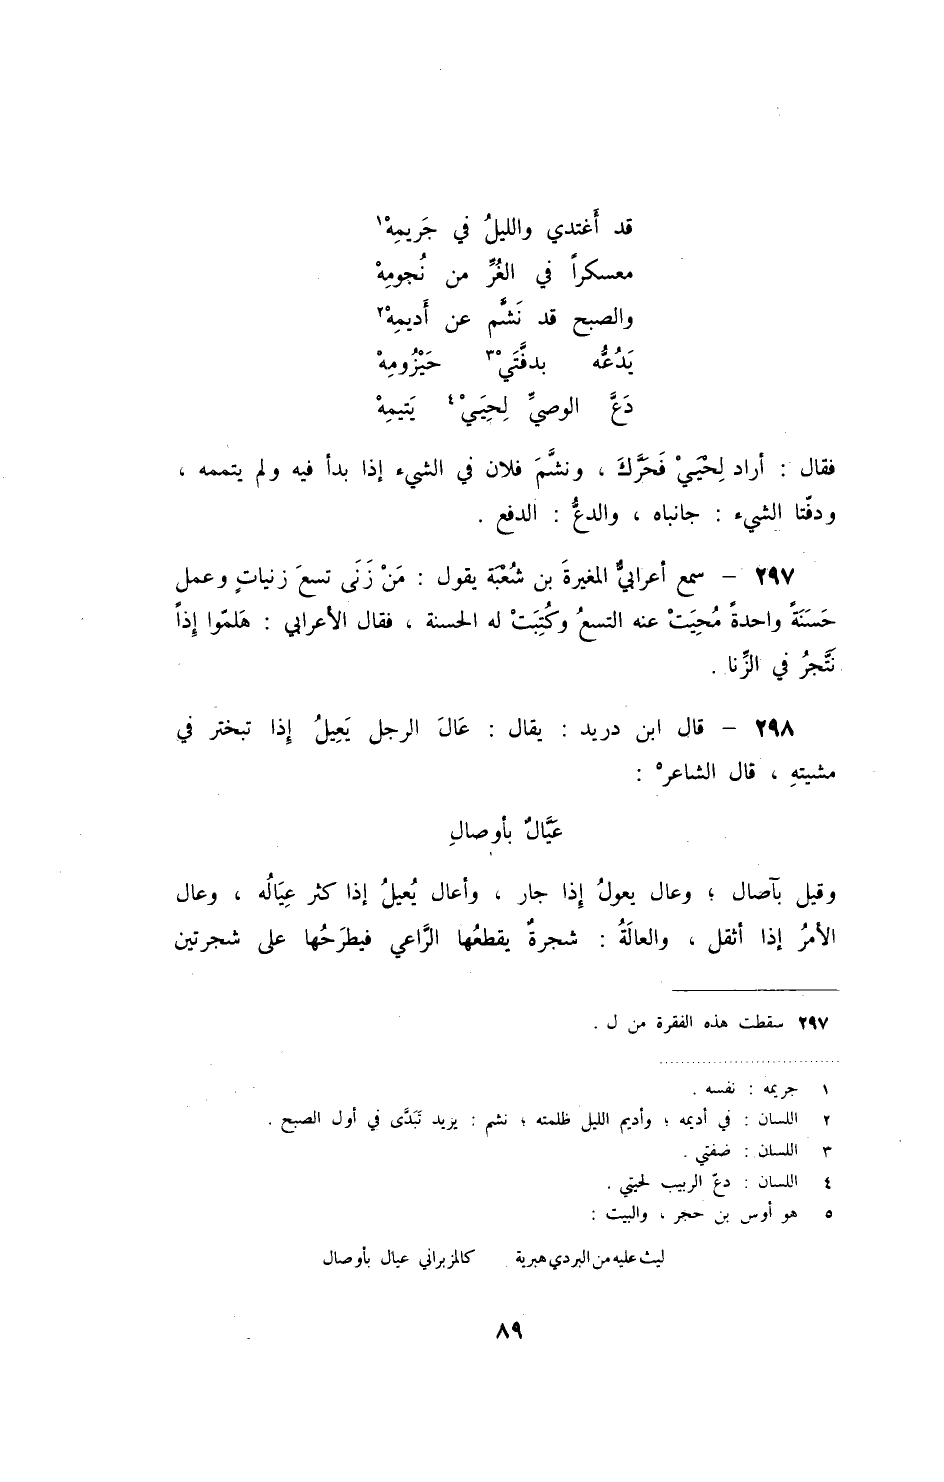 قد أَغتدي والليلُ في جَريمِهْ١
معسكراً في الغُرِّ من نُجومِهْ
والصبح قد نَشَّم عن أَديمِهْ٢
يَدُعُّه بدفَّتَيْ٣ حَيْزُومِهْ
دَعَّ الوصيِّ لِحِيَيْ٤ يَتيمِهْ
فقال : أراد لِحْيَيْ فَحَرَّكَ ، ونشَّمَ فلان في الشيء إذا بدأ فيه ولم يتممه ،
ودفّتا الشيء : جانباه ، والدعُّ : الدفع .
٢٩٧ – سمع أعرابيٌّ المغيرةَ بن شُعْبَة يقول : مَنْ زَنَى تسعَ زنياتٍ وعمل
حَسَنَةً واحدةً مُحِيَتْ عنه التسعُ وكُتِبَتْ له الحسنة ، فقال الأعرابي : هَلمّوا إذاً
نَتَّجرُ في الزِّنا .
٢٩٨ – قال ابن دريد : يقال : عَالَ الرجل يَعِيلُ إذا تبختر في
مشيتهِ ، قال الشاعر٥ :
عَيَّالٌ بأوصالِ
وقيل بآصال ؛ وعال يعولُ إذا جار ، وأعال يُعيلُ إذا كثر عِيَالُه ، وعال
الأمرُ إذا أثقل ، والعالَةُ : شجرةٌ يقطعُها الرَّاعي فيطرَحُها على شجرتين
٢٩٧ سقطت هذه الفقرة من ل .
١ جريمه : نفسه .
٢ اللسان : في أديمه ؛ وأديم الليل ظلمته ؛ نشم : يريد تَبَدَّى في أول الصبح .
٣ اللسان : ضفتي .
٤ اللسان : دعّ الربيب لحيتي .
٥ هو أوس بن حجر ، والبيت :
ليث عليه من البردي هبرية كالمزبراني عيال بأوصال
٨٩